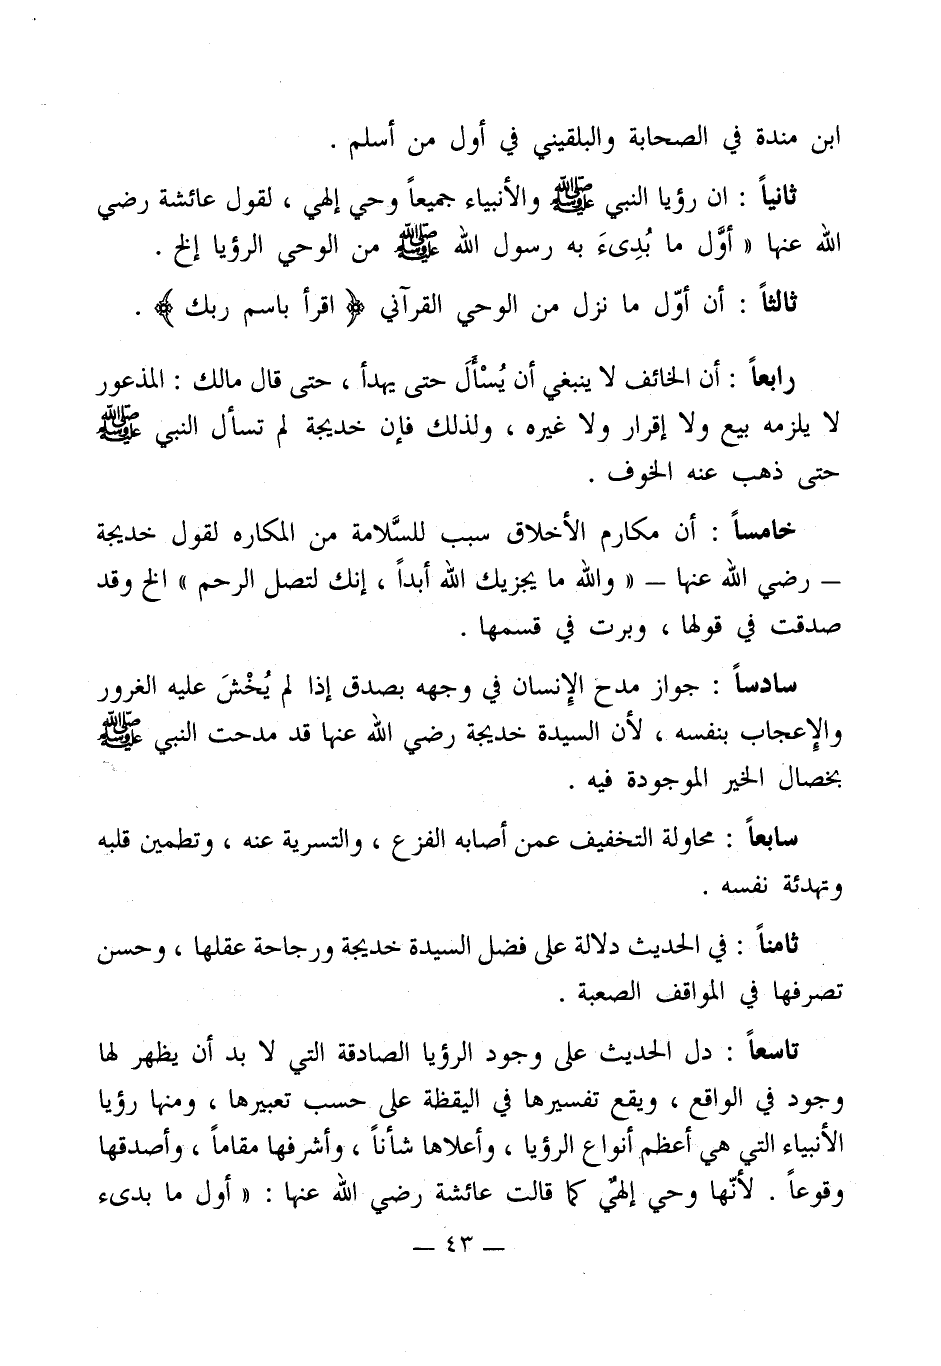 ابن مندة في الصحابة والبلقيني في أول من أسلم .
ثانياً : ان رؤيا النبي ﷺ والأنبياء جميعاً وحي إلهي ، لقول عائشة رضي
الله عنها « أوَّل ما بُدِىءَ به رسول الله ﷺ من الوحي الرؤيا إلخ .
ثالثاً : أن أوّل ما نزل من الوحي القرآني ﴿ اقرأ باسم ربك ﴾ .
رابعاً : أن الخائف لا ينبغي أن يُسْأَلَ حتى يهدأ ، حتى قال مالك : المذعور
لا يلزمه بيع ولا إقرار ولا غيره ، ولذلك فإن خديجة لم تسأل النبي ﷺ
حتى ذهب عنه الخوف .
خامساً : أن مكارم الأخلاق سبب للسَّلامة من المكاره لقول خديجة
— رضي الله عنها — « والله ما يجزيك الله أبداً ، إنك لتصل الرحم » الخ وقد
صدقت في قولها ، وبرت في قسمها .
سادساً : جواز مدح الإنسان في وجهه بصدق إذا لم يُخْشَ عليه الغرور
والإعجاب بنفسه ، لأن السيدة خديجة رضي الله عنها قد مدحت النبي ﷺ
بخصال الخير الموجودة فيه .
سابعاً : محاولة التخفيف عمن أصابه الفزع ، والتسرية عنه ، وتطمين قلبه
وتهدئة نفسه .
ثامناً : في الحديث دلالة على فضل السيدة خديجة ورجاحة عقلها ، وحسن
تصرفها في المواقف الصعبة .
تاسعاً : دل الحديث على وجود الرؤيا الصادقة التي لا بد أن يظهر لها
وجود في الواقع ، ويقع تفسيرها في اليقظة على حسب تعبيرها ، ومنها رؤيا
الأنبياء التي هي أعظم أنواع الرؤيا ، وأعلاها شأناً ، وأشرفها مقاماً ، وأصدقها
وقوعاً . لأنّها وحي إلهيٌ كما قالت عائشة رضي الله عنها : « أول ما بدىء
— ٤٣ —